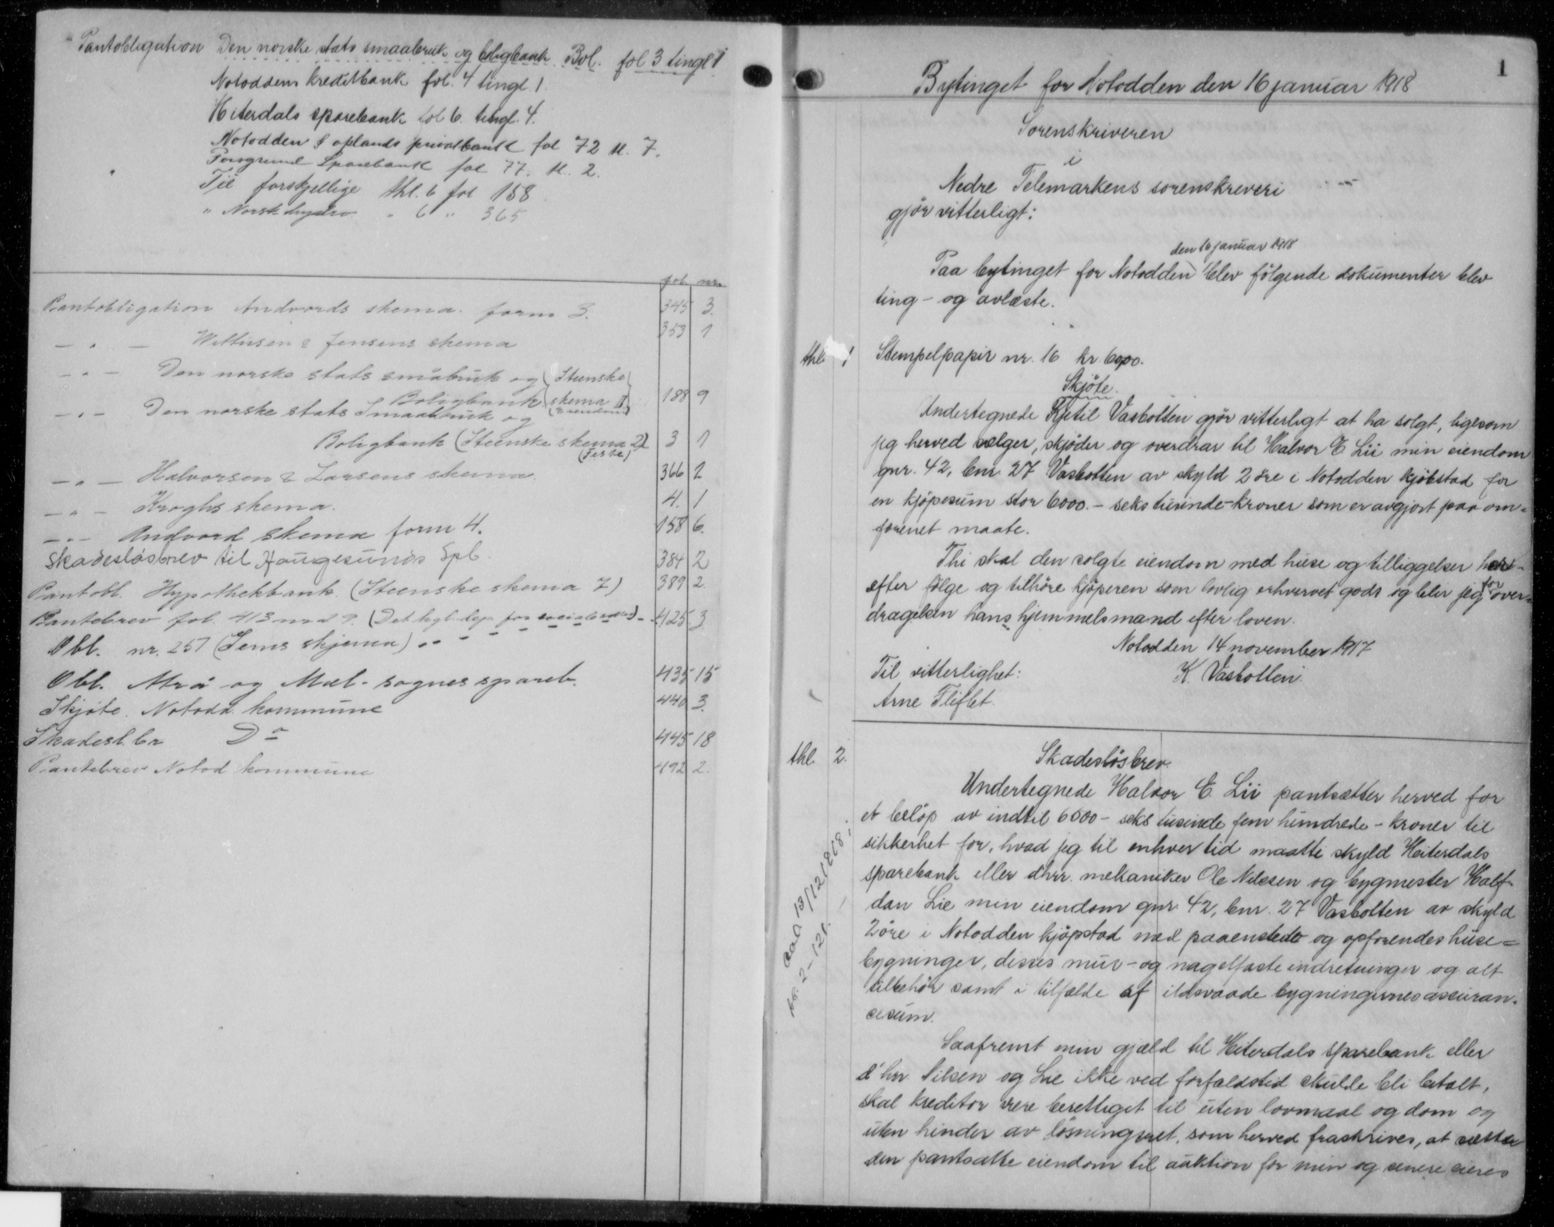 Pantobligation Den norske stats smaabruk og boligbank Bol. fol 3 tingl 1
Notoddens kreditbank fol. 4 tingl 1.
Hiterdals sparebank fol 6. tingl. 4.
Notodden & oplands privatbank fol 72 tl. 7.
Porsgrund Sparebank fol 77. tl. 2.
Til forskjellige thl. 6 fol 158
" Norsk hydro " 6 " 365
fol nr.
Pantobligation Andvords skema. form 3. 345 3.
- " - Withusen & Jensens skema 353 1
- " - Den norske stats småbruk og (Steenske
Boligbank skema II 188 9
- " - Den norske stats Smaabruk og
Boligbank (Steenske skema 2) 3 1
(Feste)
- " - Halvorsen & Larsens skema 366 2
- " - Kroghs skema. 4. 1
- " - Andvord skema form 4. 158 6.
Skadesløsbrev til Haugesunds Spb. 384 2
Pantobl. Hypothekbank. (Steenske skema 7) 389 2
Pantebrev fol. 413 (Det kgl. dep. for sociale 425 3
Obl. nr. 257 (Sems skjema) " "
Obl. Atrå og Mæl- sognes spareb. 435 15
Skjøte. Notodd. kommune 440 3.
Skadesl. br Do 445 18
Pantebrev Notod kommune 492 2.
1
Bytinget for Notodden den 16 januar 1918
Sorenskriveren
i
Nedre Telemarkens sorenskriveri
gjør vitterligt:
den 16 januar 1918
Paa bytinget for Notodden blev følgende dokumenter blev
ting- og avlæste.
thl. 1 Stempelpapir nr. 16 kr 6,00.
Skjøte.
Undertegnede Kjetil Vasbotten gjør vitterligt at ha solgt, ligesom
jeg herved sælger, skjøder og overdrar til Halvor E Lii min eiendom
gnr. 42, bnr. 27 Vasbotten av skyld 2 øre i Notodden kjøbstad for
en kjøpesum stor 6000.- seks tusinde-kroner som er avgjort paa om-
forenet maate.
Thi skal den solgte eiendom med huse og tilliggelser her-
efter følge og tilhøre kjøperen som lovlig erhvervet gods og blir jeg for over-
dragelsen hans hjemmelsmand efter loven.
Notodden 14 november 1917
Til vitterlighet: K. Vasbotten
Arne Fliflet.
thl. 2. Skadesløsbrev.
Undertegnede Halvor E. Lii pantsætter herved for
et beløp av indtil 6500- seks tusinde fem hundrede - kroner til
sikkerhet for, hvad jeg til enhver tid maatte skyld Hiterdals
sparebank eller dhrr. mekaniker Ole Nilsen og bygmester Half-
dan Lie min eiendom gnr. 42, bnr. 27 Vasbotten av skyld
2 øre i Notodden kjøpstad med paaenstede og opførendes huse-
bygninger, disses mur- og nagelfaste indretninger og alt
tilbehør samt i tilfælde af ildsvaade bygningernes assuran-
cesum.
Saafremt min gjæld til Hiterdals sparebank eller
d'hrr Nilsen og Lie ikke ved forfaldstid skulde bli betalt,
skal kreditor være berettiget til uten lovmaal og dom og
uten hinder av løsningsret, som herved fraskrives, at sætte
den pantsatte eiendom til auktion for min og senere eieres
13/12 1918